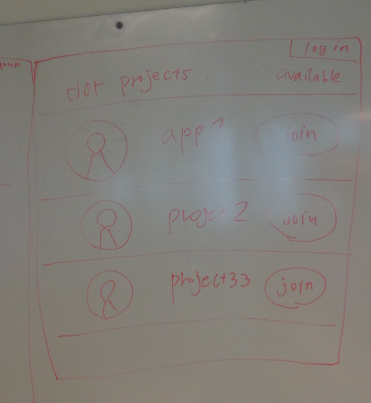 log in
projects
available
app 1
join
project 2
join
project33
join